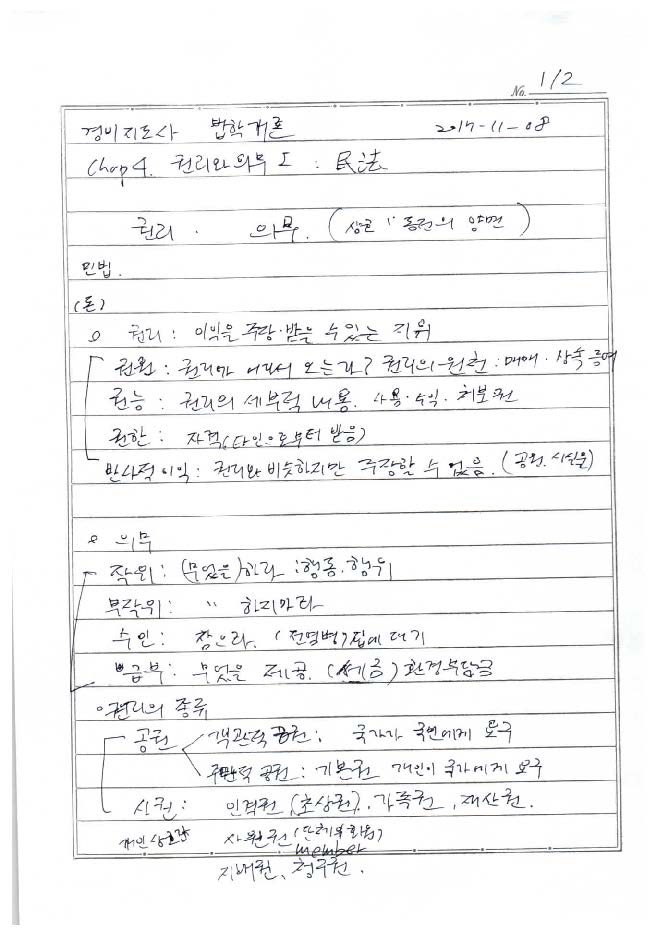 No. 1/2
경비지도사 법학개론 2017-11-08
Chap 4. 권리와 의무 I : 民法
권리 · 의무. ( 동전의 양면 )
민법.
(돈)
o 권리 : 이익을 주장·받을 수 있는 지위
권원 : 권리가 어디서 오는가? 권리의 원천 : 매매 · 상속 증여
권능 : 권리의 세부적 내용. 사용·수익·처분권
권한 : 자격 (타인으로부터 받음)
반사적 이익 : 권리와 비슷하지만 주장할 수 없음. (공원. )
o 의무
작위 : (무엇을) 하라 : 행동. 행위
부작위 : " 하지마라
수인 : 참으라. (전염병) 집에 대기
급부 : 무엇을 제공. (세금) 환경부담금
o 권리의 종류
공권 객관적 공권 : 국가가 국민에게 요구
주관적 공권 : 기본권 개인이 국가에게 요구
사권 : 인격권 (초상권). 가족권, 재산권.
개인 상호간 사원권 (단체의 회원)
member
지배권, 청구권.